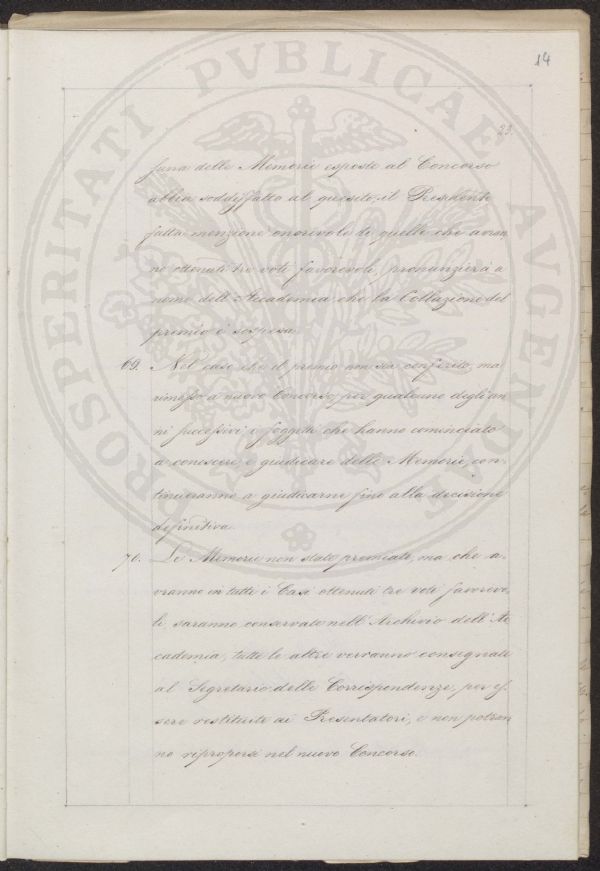 14
23
suna delle Memorie esposte al Concorso
abbia soddisfatto al quesito, il Presidente
fatta menzione onorevole di quelle che avran
no ottenuti tre voti favorevoli, pronunzierà a
nome dell'Accademia che la Collazione del
premio è sospesa.
69. Nel caso che il premio non sia conferito, ma
rimesso a nuovo Concorso per qualcuno degli an
ni successivi i soggetti che hanno cominciato
a conoscere, e giudicare delle Memorie, con-
tinueranno a giudicarne fino alla decisione
definitiva.
70. Le Memorie non state premiate, ma che a-
vranno in tutti i Casi ottenuti tre voti favorevo
li, saranno conservate nell'Archivio dell'Ac
cademia; tutte le altre verranno consegnate
al Segretario delle Corrispondenze, per es
sere restituite ai Presentatori, e non potran
no riproporsi nel nuovo Concorso.
PROSPERITATI PVBLICAE AVGENDAE